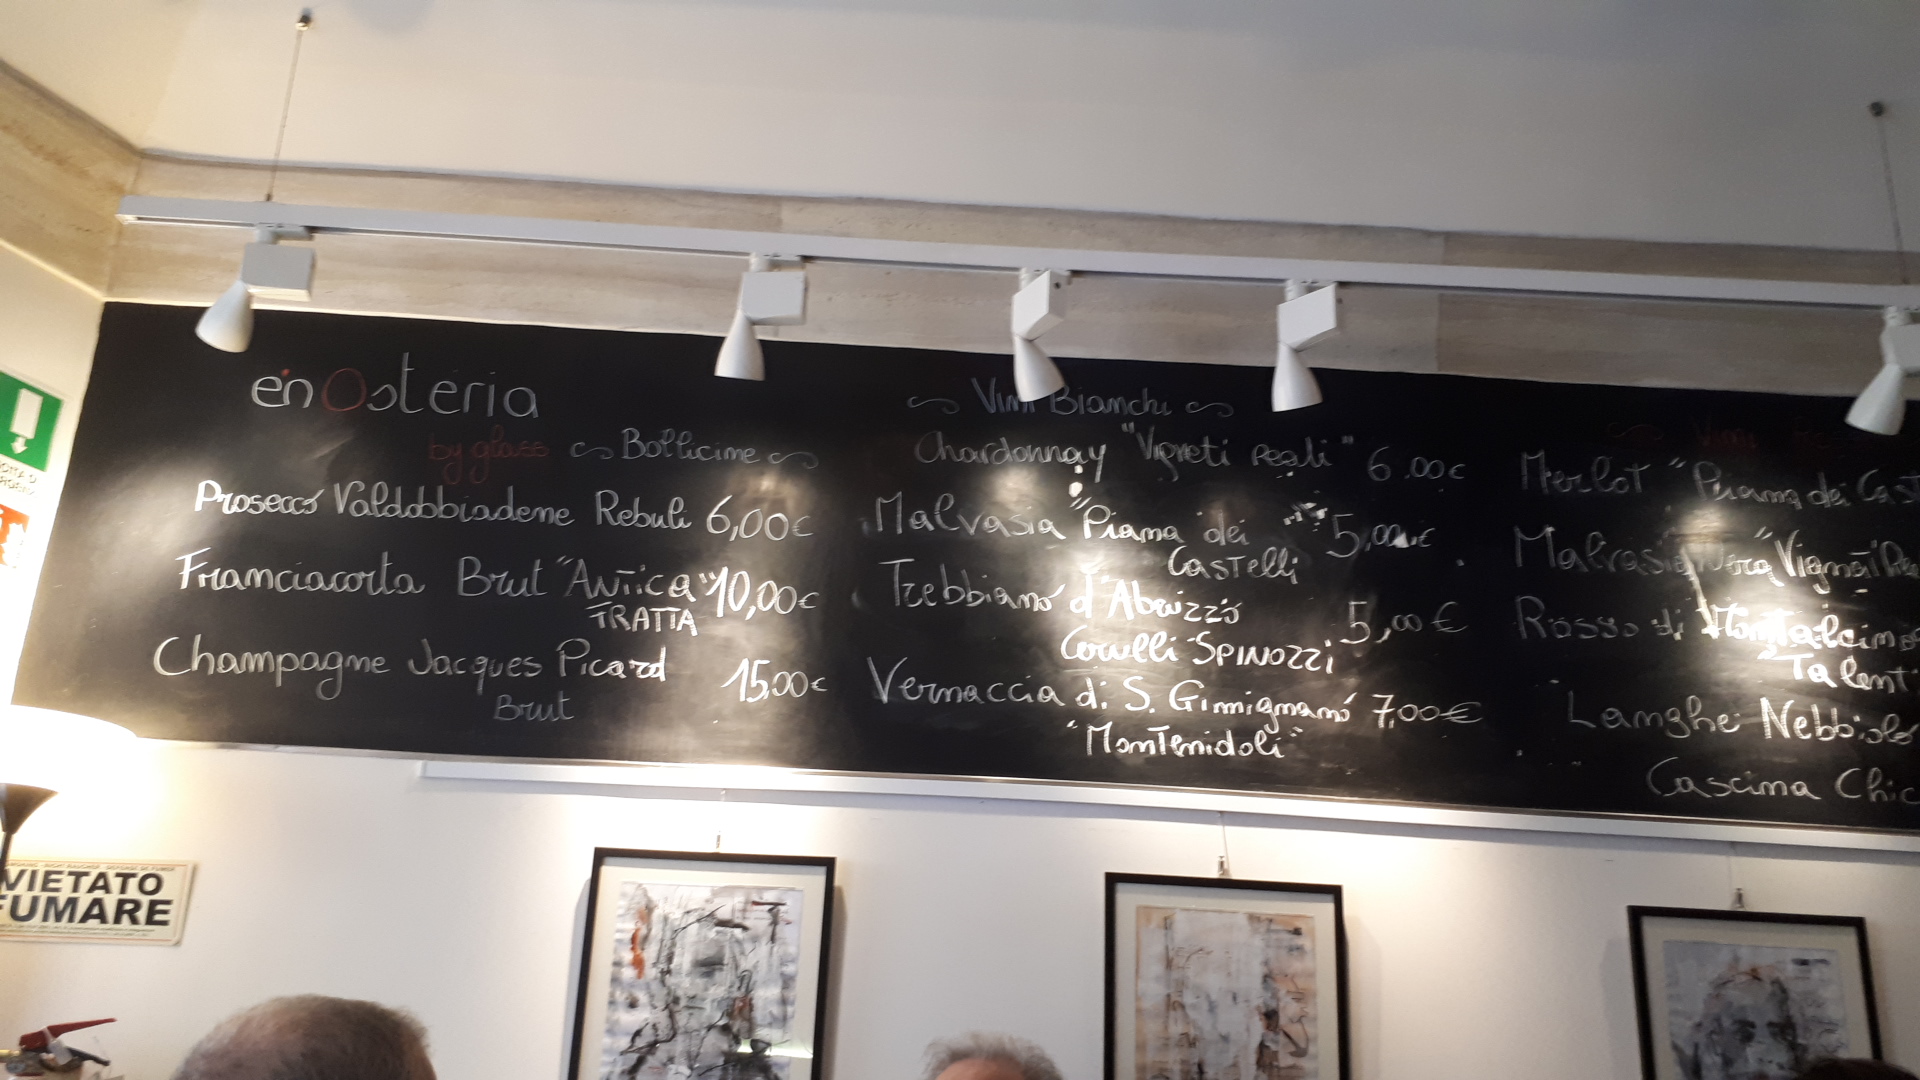 enOsteria
by glass
Bollicine
Prosecco Valdobbiadene Rebuli 6,00€
Franciacorta Brut "Antica 10,00€
FRATTA"
Champagne Jacques Picard 15,00€
Brut
Vini Bianchi
Chardonnay "Vigneti Reali" 6.00€
Malvasia "Piana dei 5,00€
Castelli"
Trebbiano d'Abruzzo 5,00€
Cerulli SPINOZZI
Vernaccia di S. Gimignano 7,00€
"Montenidoli"
Vini
Merlot "Piana dei
Malvasia Nera
Rosso di Montalcino
Langhe Nebbiolo
Cascina
VIETATO
FUMARE